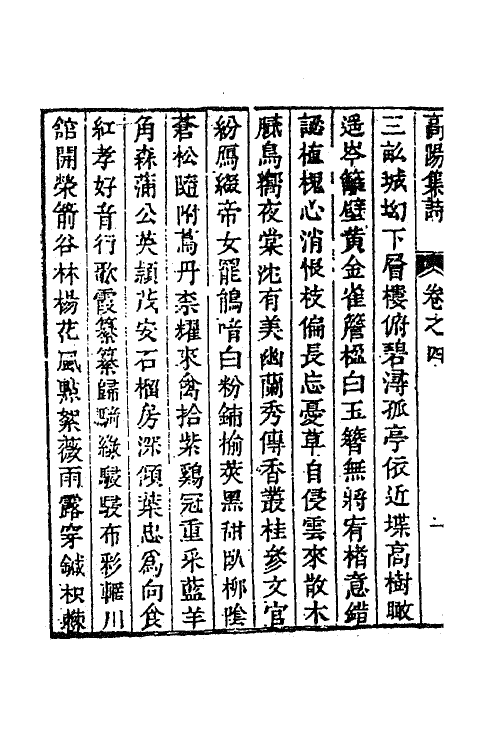 高陽集詩 卷之四 二
三畝城坳下層樓俯碧潯孤亭依近堞高樹瞰
遥岑籬壁黄金雀簷楹白玉簪無將宥楮意錯
認植槐心消恨枝偏長忘憂草自侵雲來散木
鳥嚮夜棠沈有美幽蘭秀傳香叢桂參文官
紛鴈綴帝女罷鵲喑白粉鋪榆莢黑甜臥柳陰
蒼松隨附蔦丹柰耀來禽拾紫鷄冠重采藍羊
角森蒲公英頴茂安石榴房深傾葉忠爲向食
紅孝好音行歌霞纂纂歸騎綠駸駸布彩輞川
舘開榮箭谷林楊花風㸃絮薇雨露穿鍼枳棘